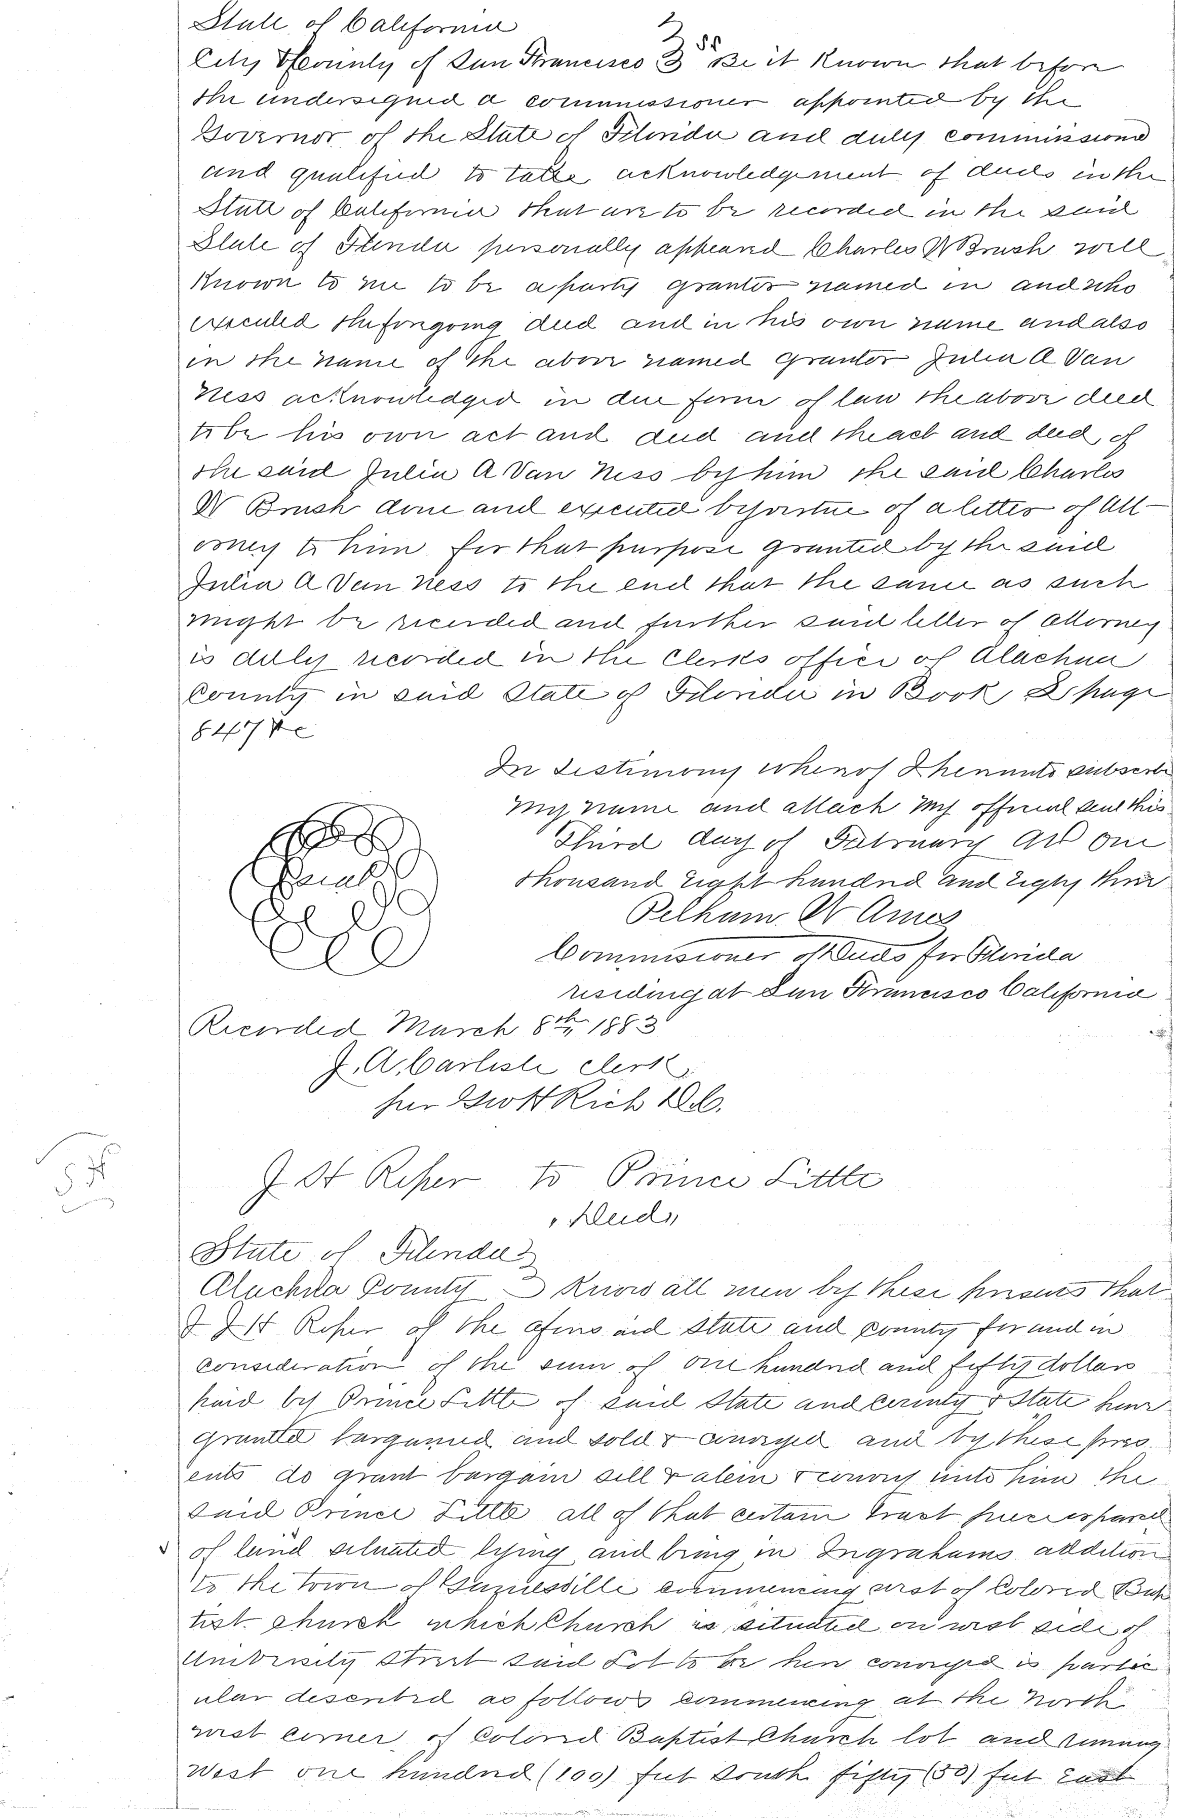 State of California
City & County of San Francisco } ss Be it Known that before
the undersigned a commissioner appointed by the
Governor of the State of Florida and duly commissiond
and qualified to take acknowledgement of deeds in the
State of California that are to be recorded in the said
State of Florida personally appeard Charles W Brush well
Known to me to be a party grantor named in and who
executed the foregoing deed and in his own name and also
in the name of the above named grantor Julia A Van
Ness acknowledged in due form of law the above deed
to be his own act and deed and the act and deed of
the said Julia A Van Ness by him the said Charles
W Brush done and executed by virtue of a letter of Att-
orney to him for that purpose granted by the said
Julia A Van Ness to the end that the same as such
might be recorded and further said letter of attorney
is duly recorded in the Clerks office of Alachua
County in said State of Florida in Book page
847 &c
In testimony whereof I hereunto subscribe
my name and attach my official seal this
Third day of February AD one
thousand Eight hundred and Eighty three
Seal
Pelham W Ames
Commissioner of Deeds for Florida
residing at San Francisco California
Recorded March 8th 1883
J. A. Carlisle Clerk
per Rich D.C.
J H Roper to Prince Little
"Deed"
State of Florida }
Alachua County } Know all men by these presents that
I J H Roper of the aforesaid State and County for and in
consideration of the sum of one hundred and fifty dollars
paid by Prince Little of said State and County & State have
granted bargained and sold & conveyed and by these pres
ents do grant bargain sell & alein & convey unto him the
said Prince Little all of that certain tract piece or parcel
of land situated lying and being in Ingrahams addition
to the town of Gainesville commencing west of Colored Bap
tist church which Church is situated on west side of
University Street said Lot to be here conveyed is partic
ular described as follows commencing at the North
west corner of Colored Baptist Church lot and running
West one hundred (100) feet South fifty (50) feet East